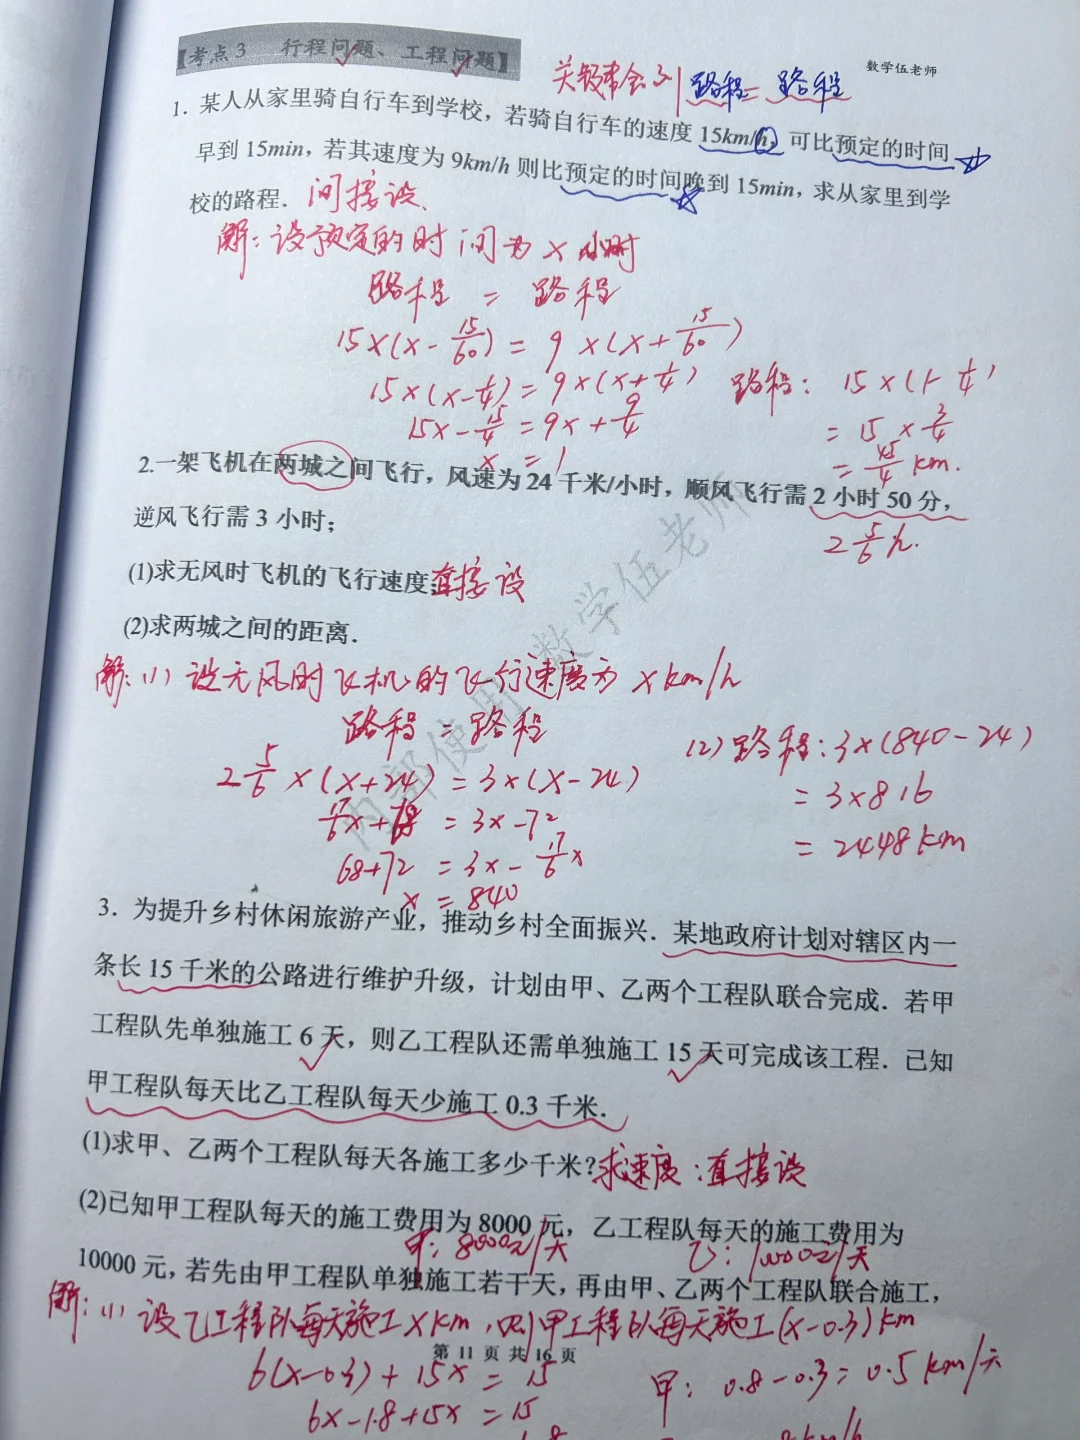 【考点 3 行程问题、工程问题】
数学伍老师
关键 路程 = 路程
1. 某人从家里骑自行车到学校，若骑自行车的速度 15km/h，可比预定的时间
早到 15min，若其速度为 9km/h 则比预定的时间晚到 15min，求从家里到学
校的路程． 间接设、
解：设预定的时间为 x 小时
路程 = 路程
15×(x-15/60) = 9×(x+15/60)
15×(x-1/4) = 9×(x+1/4)
15x-15/4 = 9x+9/4
x = 1
路程：15×(1-1/4)
= 15×3/4
= 45/4 km.
2.一架飞机在两城之间飞行，风速为 24 千米/小时，顺风飞行需 2 小时 50 分，
2 5/6 h.
逆风飞行需 3 小时；
(1)求无风时飞机的飞行速度；直接设
(2)求两城之间的距离．
解：(1) 设无风时飞机的飞行速度为 x km/h
路程 = 路程
2 5/6 ×(x+24) = 3×(x-24)
17/6x+68 = 3x-72
68+72 = 3x-17/6x
x = 840
(2) 路程：3×(840-24)
= 3×816
= 2448km
3．为提升乡村休闲旅游产业，推动乡村全面振兴．某地政府计划对辖区内一
条长 15 千米的公路进行维护升级，计划由甲、乙两个工程队联合完成．若甲
工程队先单独施工 6 天，则乙工程队还需单独施工 15 天可完成该工程．已知
甲工程队每天比乙工程队每天少施工 0.3 千米．
(1)求甲、乙两个工程队每天各施工多少千米？求速度：直接设
(2)已知甲工程队每天的施工费用为 8000 元，乙工程队每天的施工费用为
甲：8000元/天 乙：10000元/天
10000 元，若先由甲工程队单独施工若干天，再由甲、乙两个工程队联合施工，
解：(1) 设乙工程队每天施工 x km，则甲工程队每天施工(x-0.3)km
第 11 页 共 16 页
6(x-0.3)+15x = 15
6x-1.8+15x = 15
甲：0.8-0.3=0.5km/天
内部使用 数学伍老师